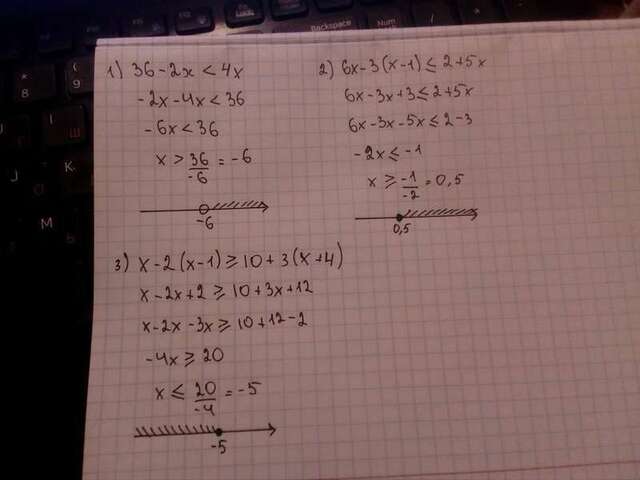 Backspace
Num
/
*
*
8
(
9
I
Ш
J
K
M
1) 36 - 2x < 4x
-2x - 4x < 36
-6x < 36
x > 36/-6 = -6
-6
2) 6x - 3(x - 1) ≤ 2 + 5x
6x - 3x + 3 ≤ 2 + 5x
6x - 3x - 5x ≤ 2 - 3
-2x ≤ -1
x ≥ -1/-2 = 0,5
0,5
3) x - 2(x - 1) ≥ 10 + 3(x + 4)
x - 2x + 2 ≥ 10 + 3x + 12
x - 2x - 3x ≥ 10 + 12 - 2
-4x ≥ 20
x ≤ 20/-4 = -5
-5